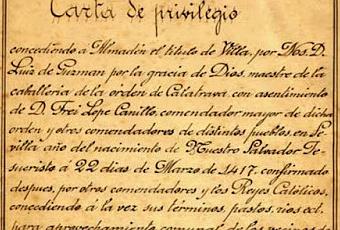 Carta de privilegio
concediendo á Almadén el titulo de Villa, por Dos. D.
Luis de Guzman por la gracia de Dios, maestre de la
caballeria de la orden de Calatrava con asentimiento
de D. Frei Lope Canillo, comendador mayor de dicha
orden y otros comendadores de distintos pueblos, en Se-
villa año del nacimiento de Nuestro Salvador Je-
sucristo á 22 dias de Marzo de 1417, confirmado
despues, por otros comendadores y los Reyes Católicos,
concediendo á la vez sus términos, pastos, rios ect.
para aprovechamiento comunal de los vecinos de